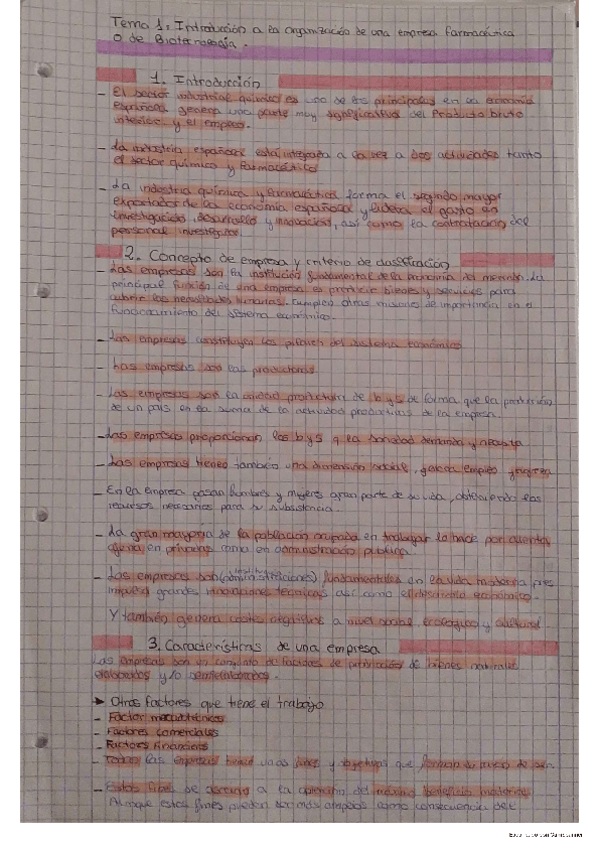 Tema 1. Introducción a la organización de una empresa farmacéutica
O de Biotecnología.
1. Introducción
- El sector industrial químico es uno de los principales en la economía
Española genera una parte muy significativa del Producto bruto
interior y el empleo.
- La industria española está integrada a la vez a dos actividades tanto
el sector químico y farmacéutico
- La industria química y farmacéutica forma el segundo mayor
exportador de la economía española y el gasto en
investigación, desarrollo y innovación, así como la contratación de
personal investigador.
2. Concepto de empresa y criterio de clasificación
- Las empresas son la institución fundamental de la economía de mercado. La
principal función de una empresa es producir bienes y servicios para
cubrir las necesidades humanas. Cumplen otras misiones de importancia en el
funcionamiento del sistema económico.
- Las empresas constituyen los pilares del sistema económico
- Las empresas son las productoras.
- Las empresas son la unidad productora de b y s de forma que la
de un país en la suma de la actividad productivas de la empresa.
- Las empresas proporcionan los b y s q la sociedad demanda y necesita
- Las empresas tienen también una dimensión social, empleo y
- En la empresa pasan hombres y mujeres gran parte de su vida, obteniendo los
recursos necesarios para su subsistencia.
- La gran mayoría de la población ocupada en trabajar lo hace por cuentas
ajena en privadas como en administración pública.
- Las empresas son fundamentales en la vida moderna pues
impulsa grandes innovaciones técnicas así como el desarrollo económico.
Y también genera costes negativos a nivel social, ecológico y cultural
3. Características de una empresa
Las empresas son un conjunto de factores de producción de bienes naturales
elaborados y/o semielaborados.
➤ Otros factores que tiene el trabajo
- Factor
- Factores comerciales
- Factores financieros
- Todas las empresas tiene unos fines y objetivos que forman su de ser.
- Estos fines de a la obtención del máximo beneficio
Aunque estos fines pueden ser más amplios como consecuencia de